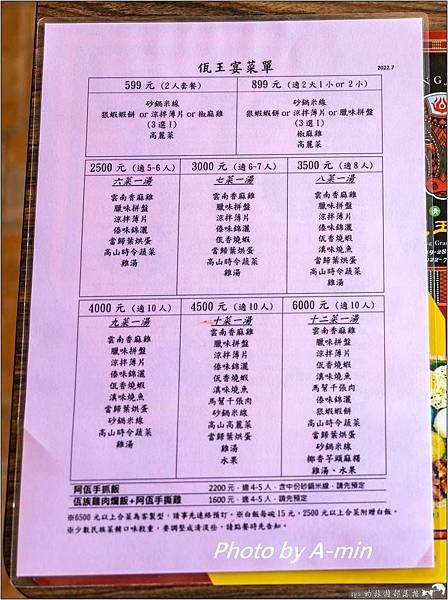 佤王宴菜單
2022.7
599 元 (2人套餐)
899 元 (適2大1小or 2小)
砂鍋米線
狠蝦蝦餅 or 涼拌薄片 or 椒麻雞
(3選1)
高麗菜
砂鍋米線
狠蝦蝦餅 or 涼拌薄片 or 臘味拼盤
(3選1)
椒麻雞
高麗菜
2500 元 (適5-6人)
六菜一湯
雲南香麻雞
臘味拼盤
涼拌薄片
傣味錦灑
當歸葉烘蛋
高山時令蔬菜
雞湯
3000 元 (適6-7人)
七菜一湯
雲南香麻雞
臘味拼盤
涼拌薄片
傣味錦灑
佤香燒蝦
當歸葉烘蛋
高山時令蔬菜
雞湯
3500 元 (適8人)
八菜一湯
雲南香麻雞
臘味拼盤
涼拌薄片
傣味錦灑
佤香燒蝦
滇味燒魚
當歸葉烘蛋
高山時令蔬菜
雞湯
4000 元 (適10人)
九菜一湯
雲南香麻雞
臘味拼盤
涼拌薄片
傣味錦灑
佤香燒蝦
滇味燒魚
當歸葉烘蛋
砂鍋米線
高山時令蔬菜
雞湯
4500 元 (適10人)
十菜一湯
雲南香麻雞
臘味拼盤
涼拌薄片
傣味錦灑
佤香燒蝦
滇味燒魚
馬幫千張肉
砂鍋米線
高山高麗菜
當歸葉烘蛋
雞湯
水果
6000 元 (適10人)
十二菜一湯
雲南香麻雞
臘味拼盤
涼拌薄片
佤香燒蝦
滇味燒魚
馬幫千張肉
傣味錦灑
狠蝦蝦餅
砂鍋米線
高山時令蔬菜
當歸葉烘蛋
椰香芋頭麻糬
雞湯、水果
阿佤手抓飯
2200元，適4-5人，含中份砂鍋米線，請先預定
佤族雞肉爛飯+阿佤手撕雞
1600元，適4-5人，請先預定
※6500元以上合菜為客製型，請事先連絡預訂。※白飯每碗15元，2500元以上合菜附贈白飯。
※少數民族菜餚口味較重，要調整成清淡些，請點餐時先告知。
Photo by A-min